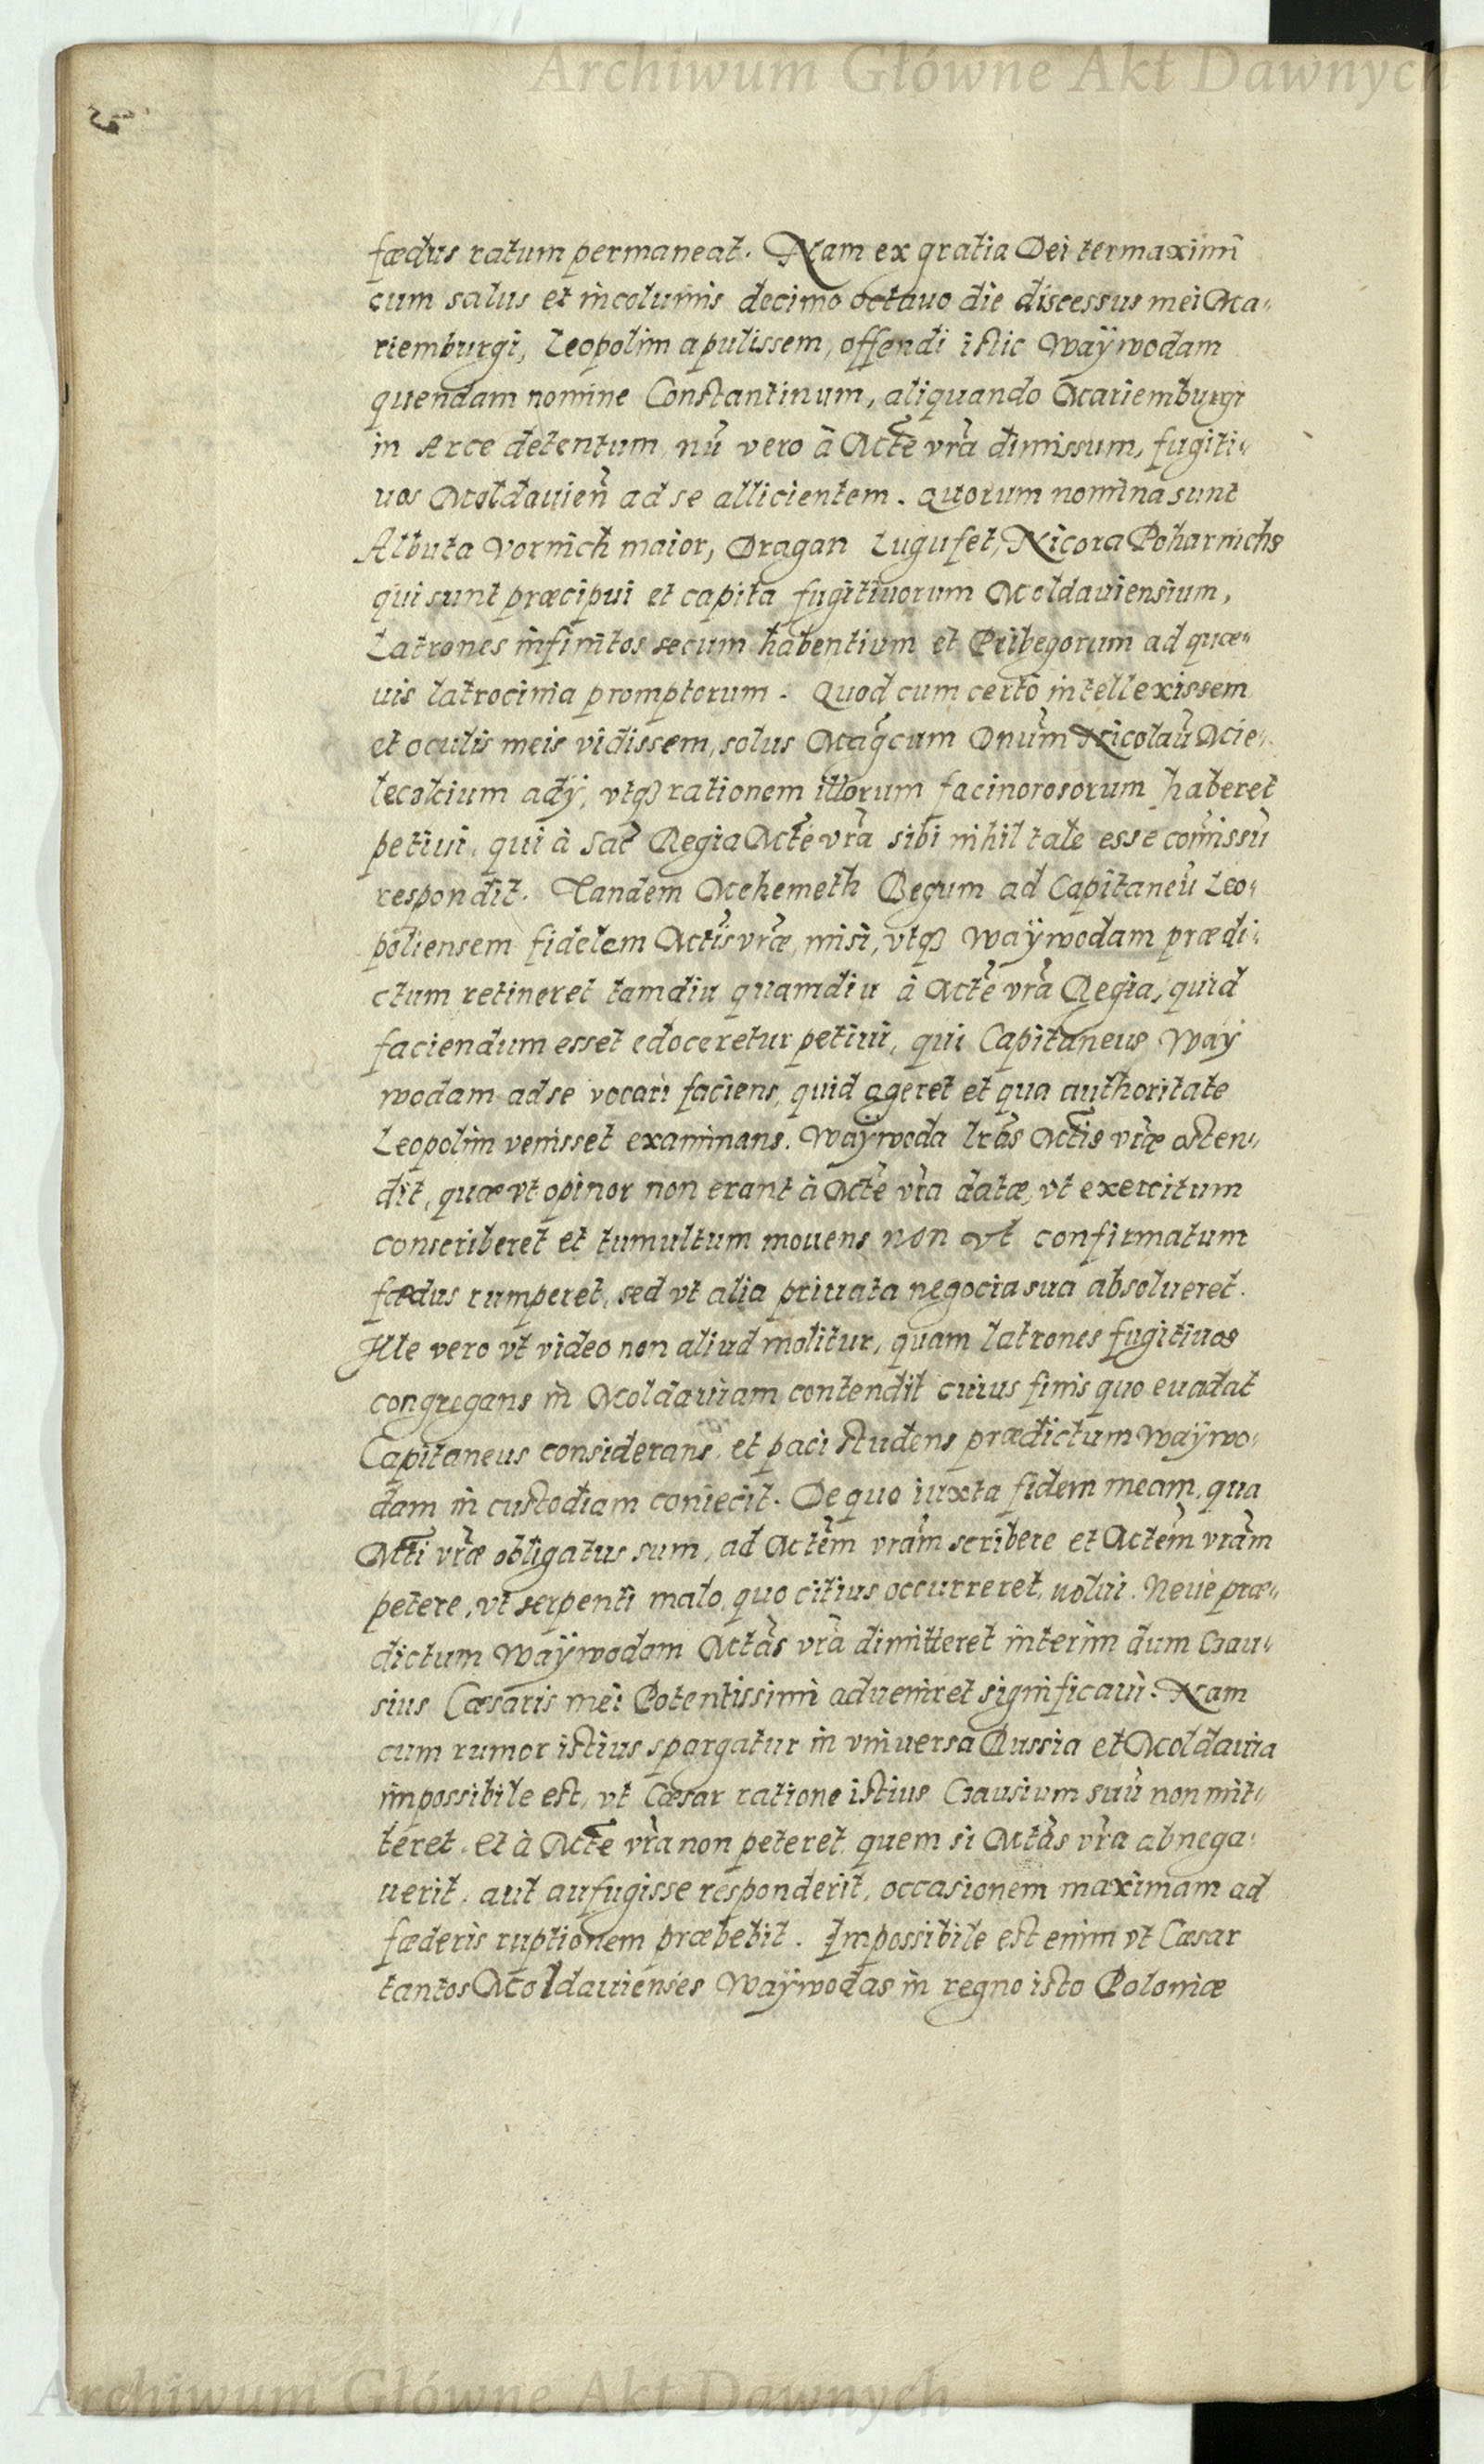 Archiwum Główne Akt Dawnych
fædus ratum permaneat. Nam ex gratia Dei termaximi
cum salus et incolumis decimo octauo die discessus mei Ma„
riemburgi, Leopolim apulissem, offendi istic Waÿwodam
quendam nomine Constantinum, aliquando Mariemburgi
in Arce detentum, nu᷃ vero à Mte᷃ vra᷃ dimissum, fugiti„
uos Moldauien᷃ ad se allicientem. Quorum nomina sunt
Albuta Vornich maior, Dragan Lugufet, Nicora Poharnichs
qui sunt præcipui et capita fugitiuorum Moldauiensium,
Latrones infinitos secum habentium et Pribegorum ad quæ„
uis latrocinia promptorum. Quod cum certo intellexissem
et oculis meis vidissem, solus Mag᷃cum Dnu᷃m Nicolau᷃ Mie„
lecolcium adÿ, vtqꝫ rationem illorum facinorosorum haberet
petiui, qui à Sac᷃ Regia Mte᷃ vra᷃ sibi nihil tale esse com᷃issu᷃
respondit. Tandem Mehemeth Begum ad Capitaneu᷃ Leo„
poliensem fidelem Mtis᷃ vræ᷃, misi, vtqꝫ Waÿwodam prædi„
ctum retineret tamdiu quamdiu à Mte᷃ vra᷃ Regia, quid
faciendum esset edoceretur petiui, qui Capitaneus Waÿ
wodam ad se vocari faciens, quid ageret et qua authoritate
Leopolim venisset examinans. Waÿwoda lra᷃s Mtis᷃ vræ᷃ osten„
dit, quæ vt opinor non erant à Mte᷃ vra᷃ datæ, vt exercitum
conscriberet et tumultum mouens non vt confirmatum
fædus rumperet, sed vt alia priuata negocia sua absolueret.
Ille vero vt video non aliud molitur, quam latrones fugitiuos
congregans in Moldauiam contendit cuius finis quo euadat
Capitaneus considerans, et paci studens prædictum Waÿwo„
dam in custodiam coniecit. De quo iuxta fidem meam, qua
Mti᷃ vræ᷃ obligatus sum, ad Mte᷃m vra᷃m scribere et Mte᷃m vra᷃m
petere, vt serpenti malo, quo citius occurreret, uolui. Neue præ„
dictum Waÿwodam Mta᷃s vra᷃ dimitteret interim dum Czau„
sius Cæsaris mei Potentissimi adueniret significaui. Nam
cum rumor istius spargatur in vniuersa Russia et Moldauia
impossibile est, vt Cæsar ratione istius Czausium suu᷃ non mit„
teret, et à Mte᷃ vra᷃ non peteret, quem si Mta᷃s vra᷃ abnega„
uerit, aut aufugisse responderit, occasionem maximam ad
fæderis ruptionem præbebit. Impossibile est enim vt Cæsar
tantos Moldauienses Waÿwodas in regno isto Poloniæ
Archiwum Główne Akt Dawnych